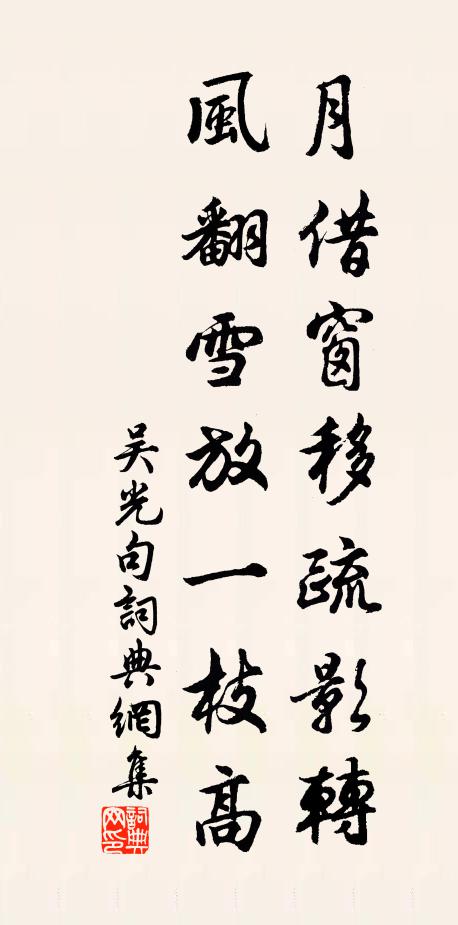 月借窗移疏影轉
風翻雪放一枝高
吴光句詞典網集
詞典網印